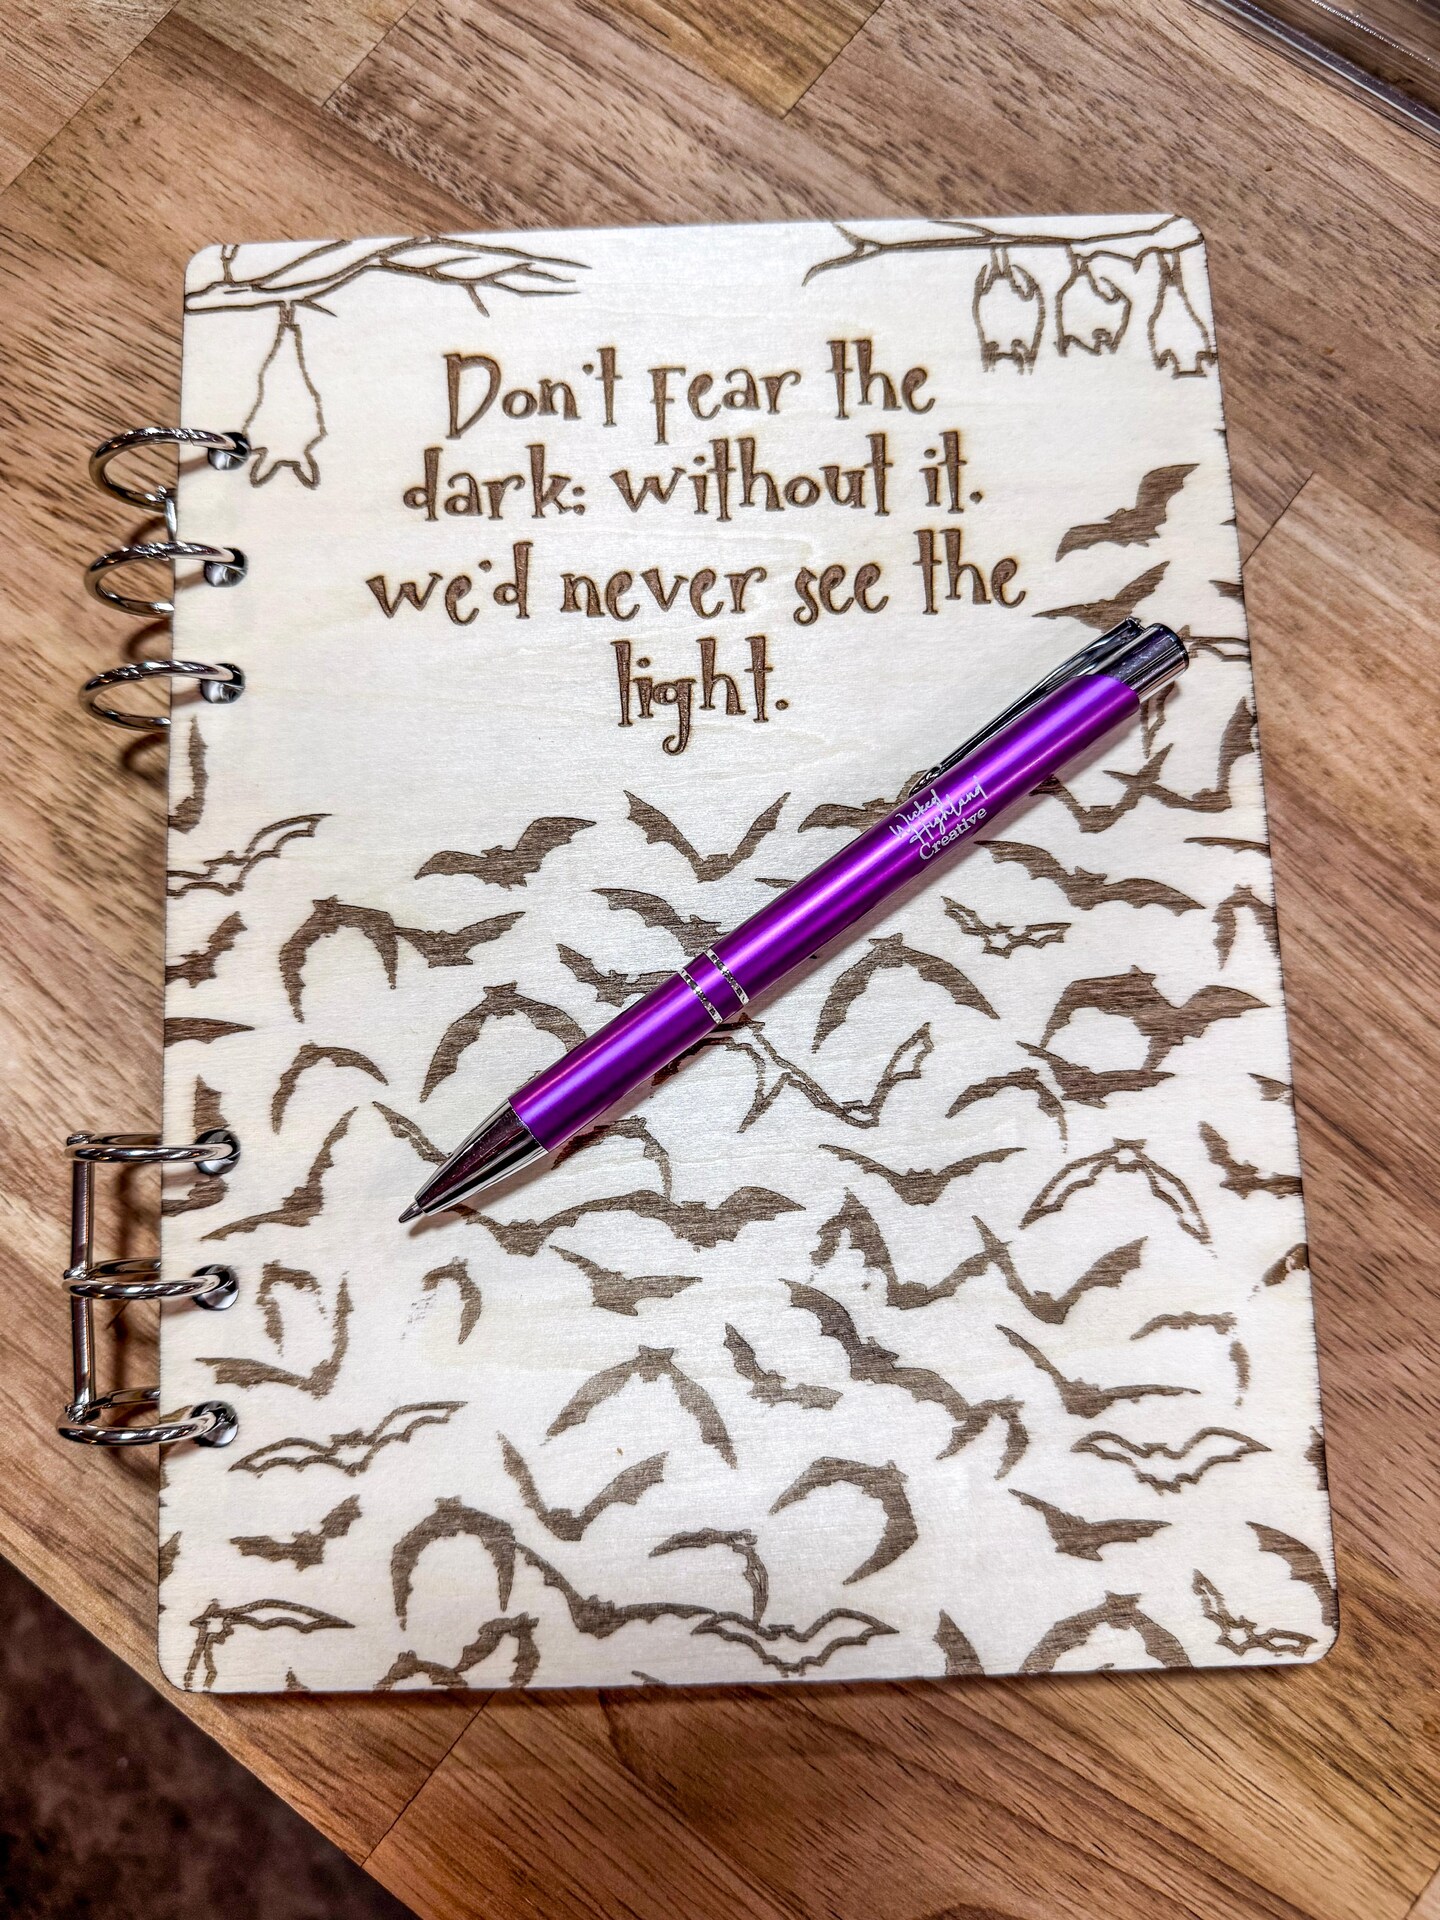 Don't fear the
dark; without it,
we'd never see the
light.
Wicked
Highland
Creative